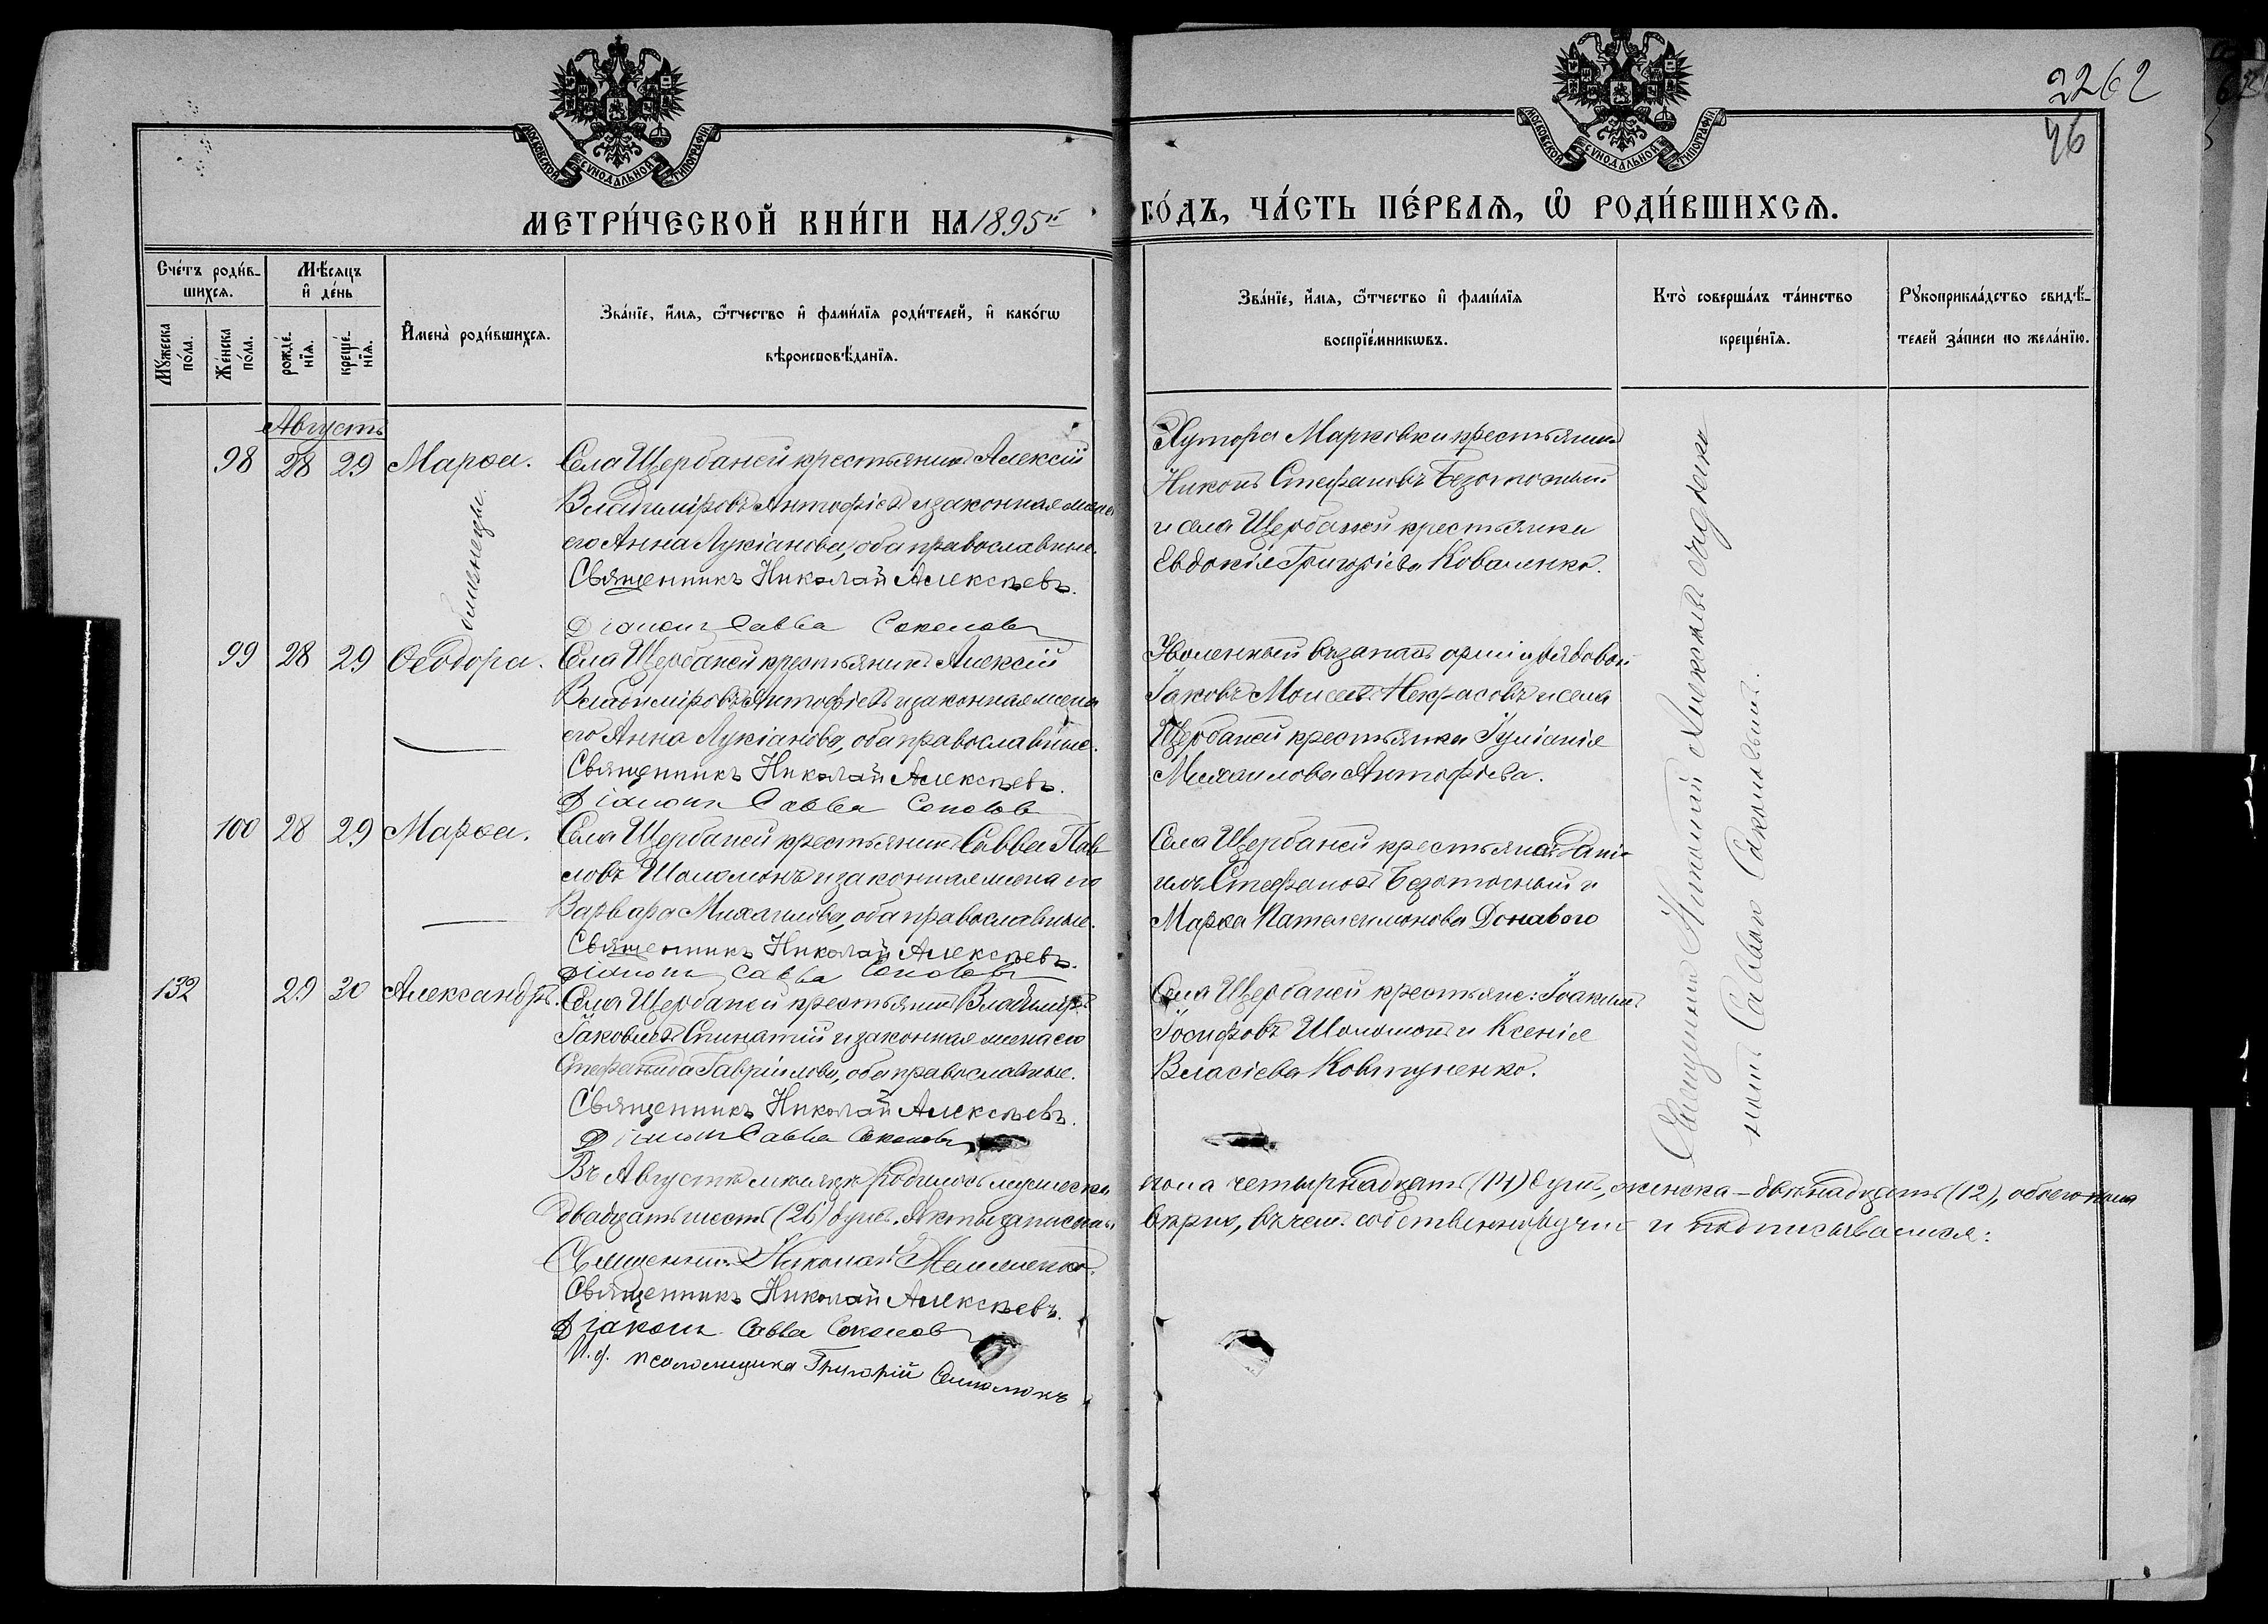 2262
46
МОСКОВСКОЙ СѴНОДАЛЬНОЙ ТИПОГРАФІИ
МОСКОВСКОЙ СѴНОДАЛЬНОЙ ТИПОГРАФІИ
МЕТРИ́ЧЕСКОЙ КНИ́ГИ НА 1895й ГО́ДЪ, ЧА́СТЬ ПЕ́РВАѦ, Ѡ РОДИ́ВШИХСѦ.
Сче́тъ роди́в-
шихсѧ.
Мѣ́сѧцъ
и҆ де́нь
Мꙋ́жеска
по́ла.
Же́нска
по́ла.
рожде́-
нїѧ.
креще́-
нїѧ.
И҆мена̀ роди́вшихсѧ.
Зва́нїе, и҆́мѧ, ѻ҆́тчество и҆ фами́лїѧ роди́телей, и҆ како́гѡ
вѣроисповѣ́данїѧ.
Зва́нїе, и҆́мѧ, ѻ҆́тчество и҆ фами́лїѧ
воспрїе́мникѡвъ.
Кто̀ соверша́лъ та́инство
креще́нїѧ.
Рꙋкоприкла́дство свидѣ́-
телей за́писи по жела́нїю.
Августъ
98 28 29 Марѳа. Села Щербаней крестьянинъ Алексій
Владиміровъ Антофіевъ и законная жена
его Анна Лукіанова, оба православные.
Священникъ Николай Алексѣевъ.
Діаконъ Савва Соколовъ
Хутора Марковки крестьянинъ
Никонъ Стефановъ Безотосный
и села Щербаней крестьянка
Евдокія Григоріева Коваленко.
близнецы
99 28 29 Ѳеодора. Села Щербаней крестьянинъ Алексій
Владиміровъ Антофіевъ и законная жена
его Анна Лукіанова, оба православные.
Священникъ Николай Алексѣевъ.
Діаконъ Савва Соколовъ
Уволенный въ запасъ арміи рядовой
Іаковъ Моисеевъ Некрасовъ и села
Щербаней крестьянка Іуліанія
Михаилова Антофіева.
100 28 29 Марѳа. Села Щербаней крестьянинъ Савва Пав
ловъ Шоломонъ и законная жена его
Варвара Михаилова, оба православные.
Священникъ Николай Алексѣевъ.
Діаконъ Савва Соколовъ
Села Щербаней крестьяне: Дані-
илъ Стефановъ Безотосный и
Марѳа Пателеимонова Донавого
132 29 30 Александръ. Села Щербаней крестьянинъ Владиміръ
Іаковлевъ Спинатій и законная жена его
Стефанида Гавріилова, оба православные.
Священникъ Николай Алексѣевъ.
Діаконъ Савва Соколовъ
Села Щербаней крестьяне: Іоакимъ
Іосифовъ Шоломонъ и Ксенія
Власіева Ковтуненко.
Священникъ Николай Алексѣевъ съ діа-
кономъ Саввою
Въ Августѣ мѣсяцѣ родилось мужеска пола четырнадцать (14) душъ, женска – двѣнадцать (12), обоего пола
двадцать шесть (26) душъ. Акты записаны вѣрно, въ чемъ собственноручно и подписываемся:
Священникъ Николай
Священникъ Николай Алексѣевъ.
Діаконъ Савва Соколовъ
И. д. псаломщика Григорій